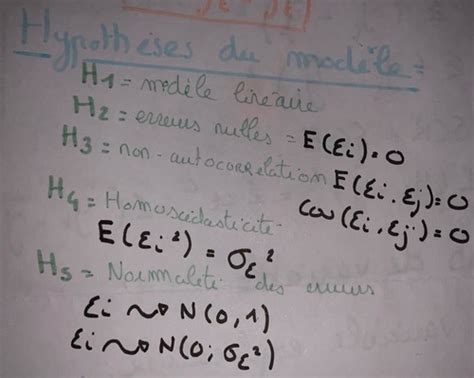 Hypothèses du modèle =
H1 = modèle linéaire
H2 = erreurs nulles = E(εi) = 0
H3 = non-autocorrelation E(εi, εj) = 0
Cov(εi, εj) = 0
H4 = Homoscédasticité
E(εi²) = σε²
H5 = Normaleté des erreurs
εi ~> N(0,1)
εi ~> N(0; σε²)